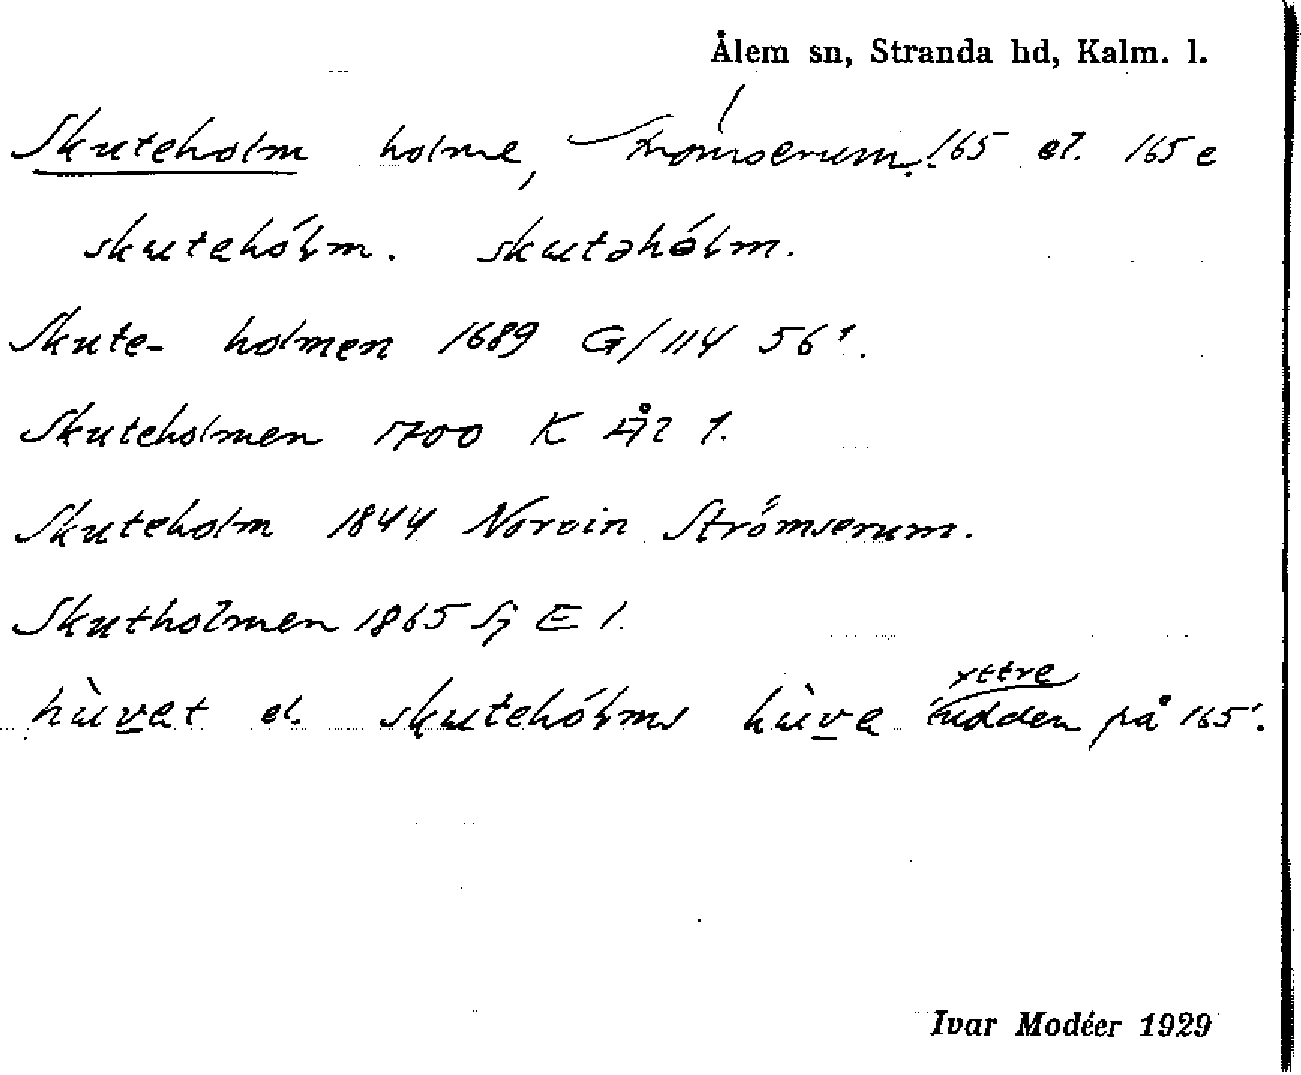 Ålem sn, Stranda hd, Kalm. l.
Skuteholm holme, Strömserum. 165 el. 165 e
skutehólm. skutəhólm.
Skute- holmen 1689 G/114 56¹.
Skuteholmen 1700 K Ål 1.
Skuteholm 1844 Norvin Strömserum.
Skutholmen 1865 Sj E 1.
yttre
hùvet el. skutehólms hùve udden på 165¹.
Ivar Modéer 1929